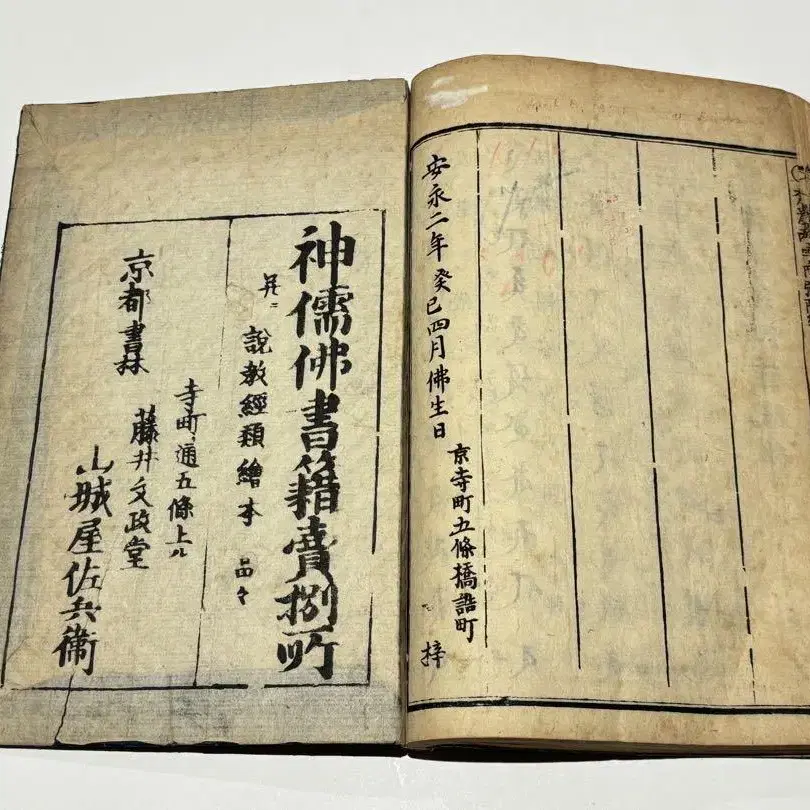 安永二年癸巳四月佛生日
京寺町五條橋詰町
梓
神儒佛書籍賣捌所
并ニ 說教經類繪本 品々
寺町通五條上ル
京都書林 藤井文政堂
山城屋佐兵衛